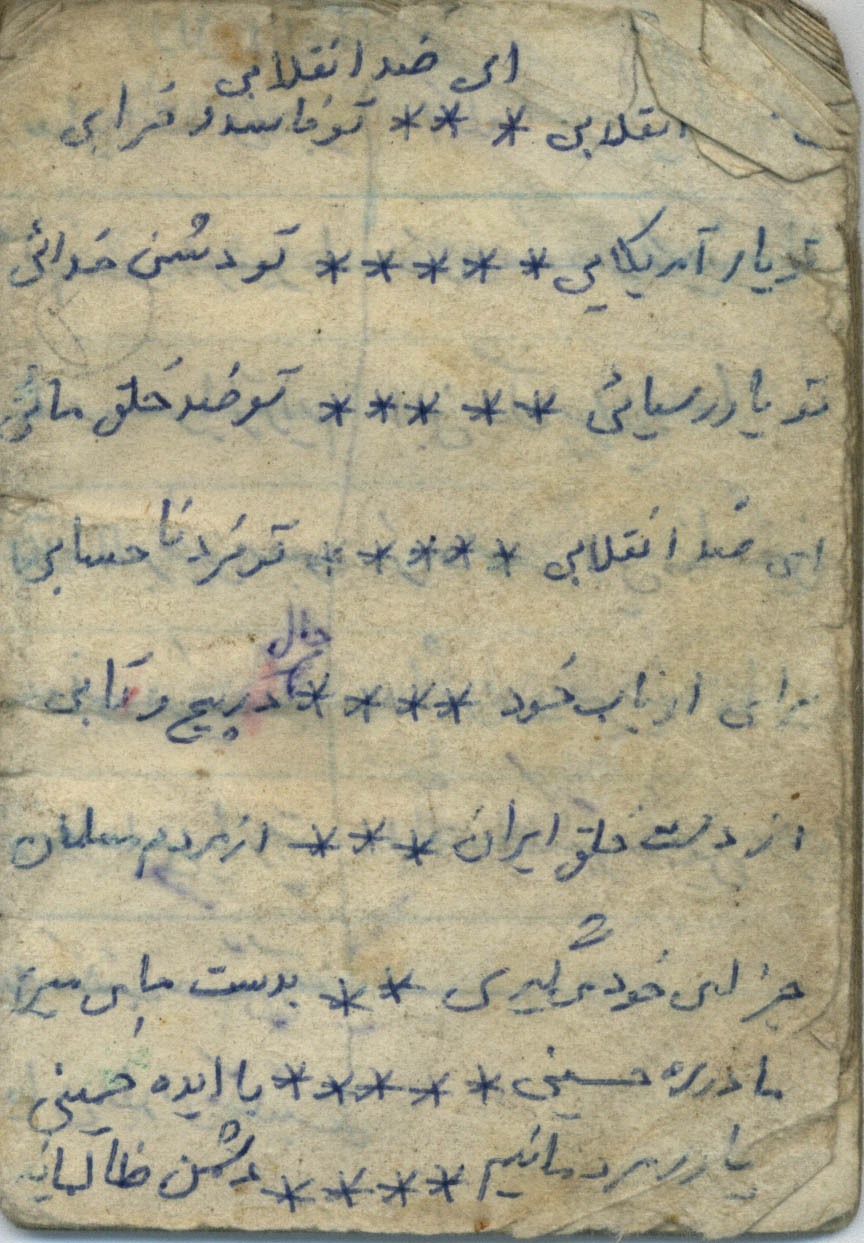 ای ضد انقلابی
انقلابی * ** تو فاسد و خرابی
تو یار آمریکایی * * * * * تو دشمن خدائی
تو یار رسیائی ** ** *** تو ضد خلق مائی
ای ضد انقلابی * * * * * تو فرد نا حسابی
برای ارباب خود * * * * در پیچ و تابی
حال
از دست خلق ایران * * * از مردم مسلمان
جزای خود می گیری ** بدست ما می میری
ما در ره حسینی * * * * * با ایده خمینی
یار و مائیم * * * * دشمن